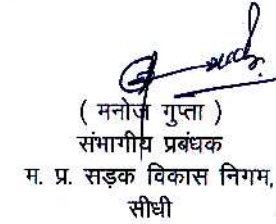 ( मनोज गुप्ता )
संभागीय प्रबंधक
म. प्र. सड़क विकास निगम,
सीधी